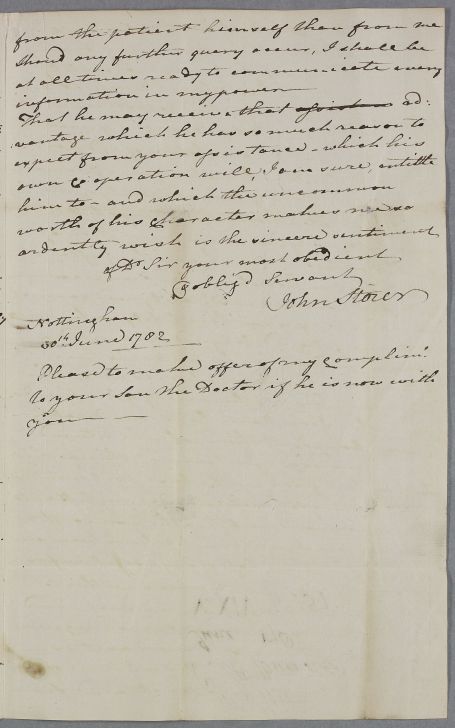 from the patient himself than from me
should any further query occur, I shall be
at all times ready to communicate every
information in my power
That he may receive that assistance ad:
vantage which he has so much reason to
expect from your assistance – which his
own Co operation will, I am sure, entittle
him to – and which the uncommon
worth of his Character makes me so
ardently wish is the sincere sentiment
of Dr Sir your most obedient
& oblig'd Servant
John Storer
Nottingham
30th June 1782
Please to make offer of my Complimts
to your Son the Doctor if he is now with
you